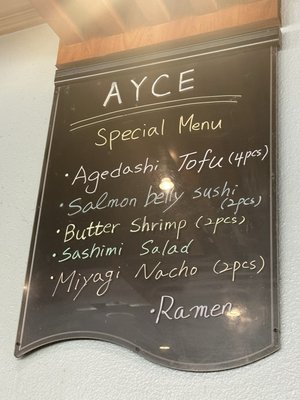 AYCE
Special Menu
· Agedashi Tofu (4pcs)
· Salmon belly sushi
(2pcs)
· Butter Shrimp (2pcs)
· Sashimi Salad
· Miyagi Nacho (2pcs)
· Ramen